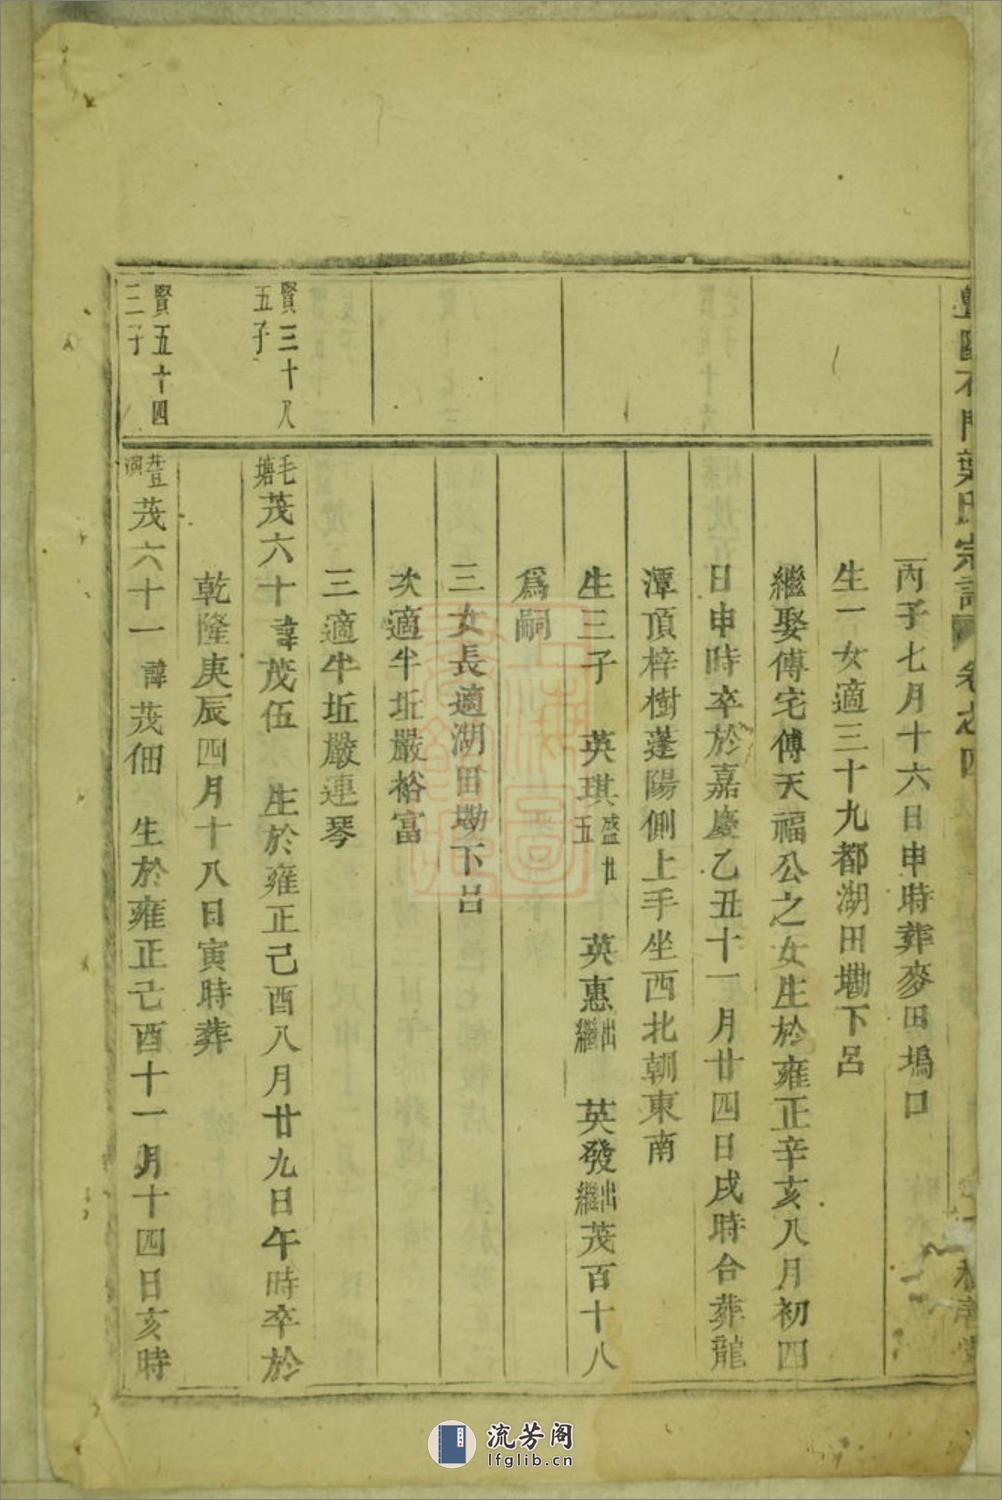 丙子七月十六日申時葬麥田塢口
生一女適三十九都湖田墈下呂
繼娶傅宅傅天福公之女生於雍正辛亥八月初四
日申時卒於嘉慶乙丑十一月廿四日戌時合葬龍
潭頂梓樹蓬陽側上手坐西北朝東南
生三子 英琪盛廿五 英惠出繼 英發出繼茂百十八
為嗣
三女長適湖田墈下呂
次適牛坵嚴裕富
三適牛坵嚴連琴
賢三十八五子
毛塘茂六十諱茂伍 生於雍正己酉八月廿九日午時卒於
乾隆庚辰四月十八日寅時葬
賢五十四三子
茂六十一諱茂佃 生於雍正己酉十一月十四日亥時
流芳阁
lfglib.cn